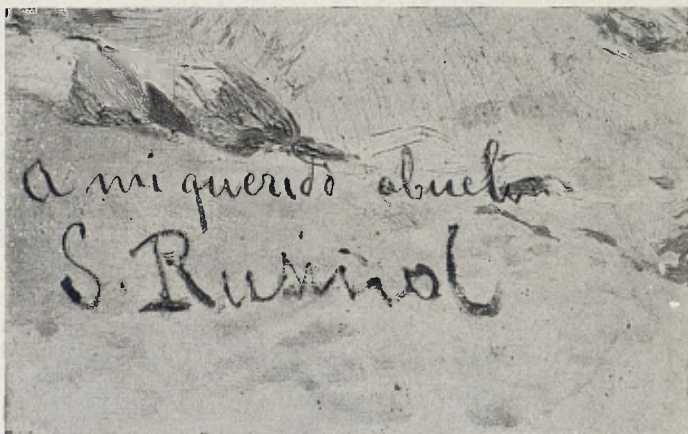 a mi querido abuelo
S. Rusiñol